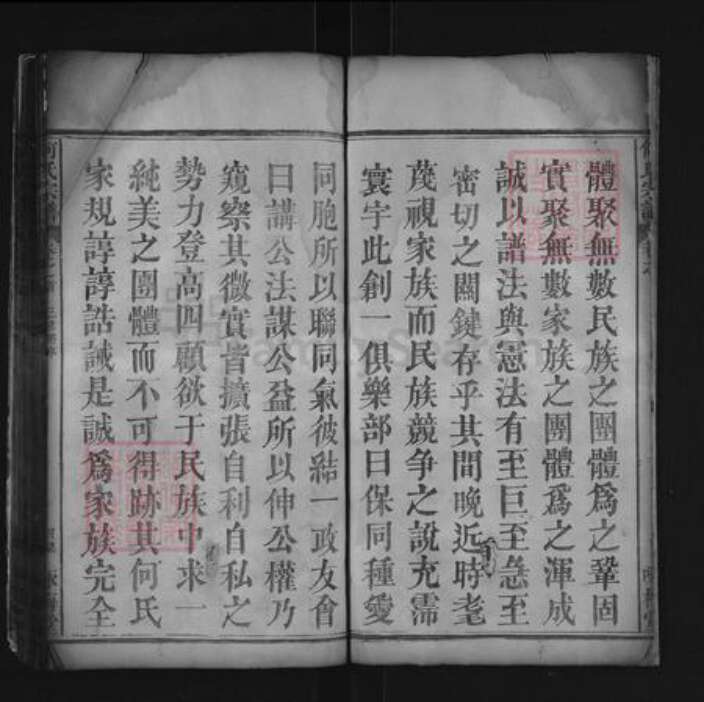 體聚無數民族之團體為之鞏固
實聚無數家族之團體為之渾成
誠以譜法與憲法有至巨至急至
密切之關鍵存乎其間晚近時耄
蔑視家族而民族競爭之說充濡
寰宇此創一俱樂部曰保同種愛
同胞所以聯同氣彼結一政友會
曰講公法謀公益所以伸公權乃
窺察其微實皆擴張自利自私之
勢力登高四顧欲于民族中求一
純美之團體而不可得跡其何氏
家規諄諄誥誡是誠為家族完全
何氏宗譜
FamilySearch